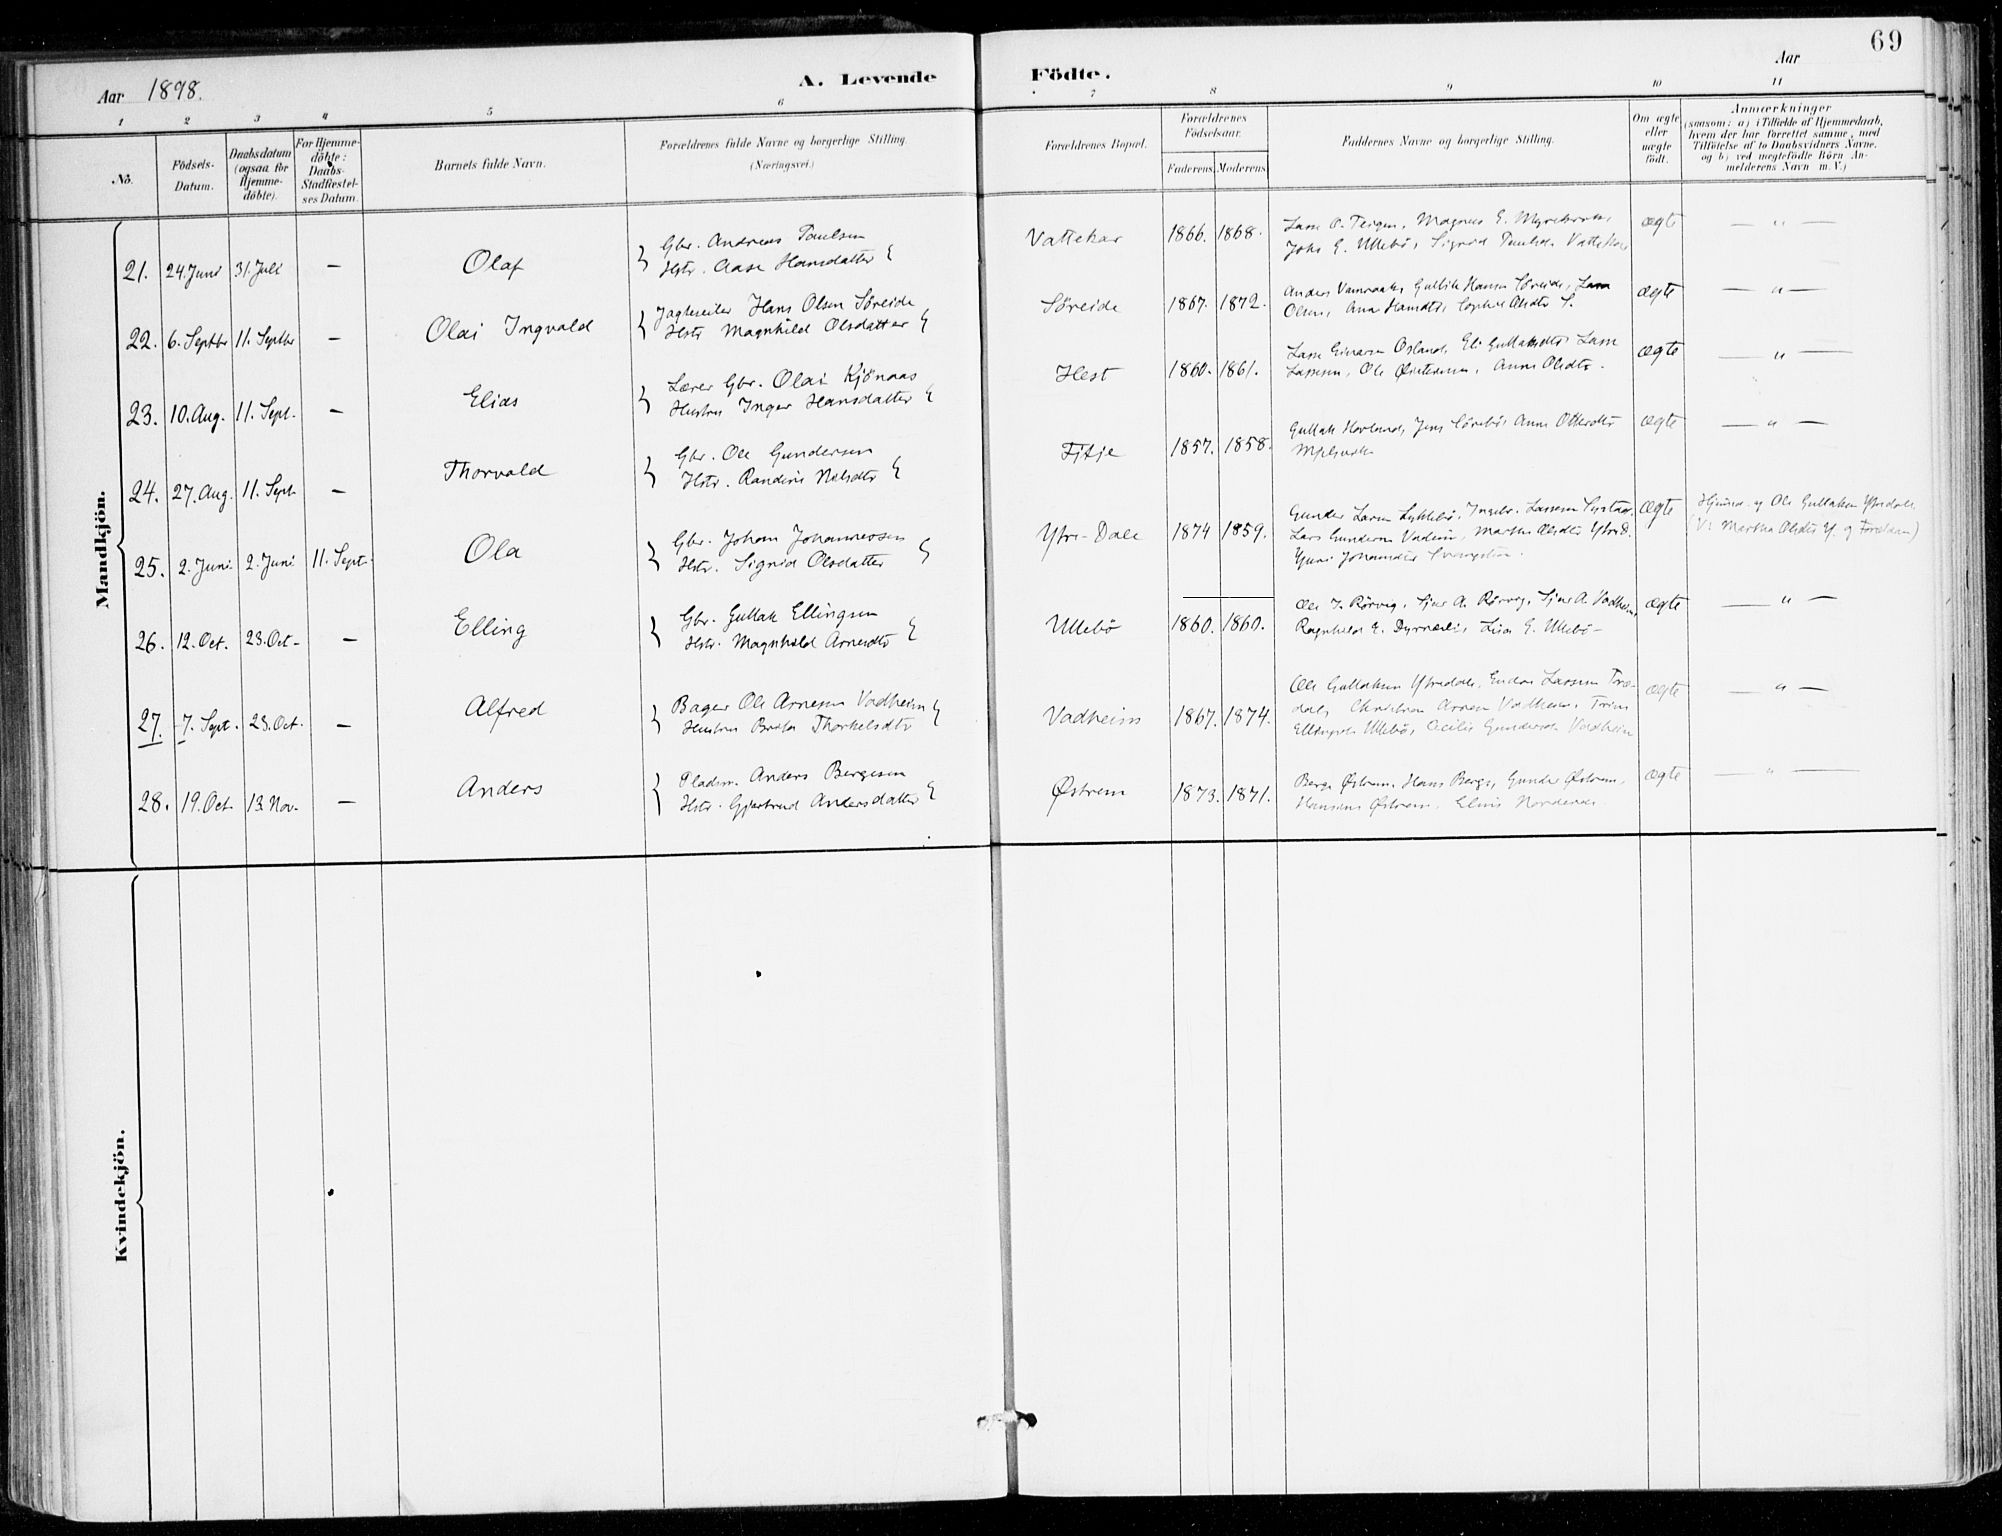 69
Aar 1898.
A. Levende Födte.
Aar
1 2 3 4 5 6 7 8 9 10 11
No.
Födsels-Datum.
Daabsdatum (ogsaa for Hjemmedöbte).
For Hjemmedöbte: Daabs-Stadfæstelses Datum.
Barnets fulde Navn.
Forældrenes fulde Navne og borgerlige Stilling. (Næringsvei.)
Forældrenes Bopæl.
Forældrenes Födselsaar.
Faderens. Moderens.
Faddernes Navne og borgerlige Stilling.
Om ægte eller uægte födt.
Anmærkninger
(saasom: a) i Tilfælde af Hjemmedaab,
hvem der har forrettet samme, med
Tilföielse af to Daabsvidners Navne,
og b) ved uægtefödte Börn An-
melderens Navn m. V.)
Mandkjön.
21. 24. Juni 31. Juli — Olaf
Gbr. Andreas Paulsen
Hstr. Aase Hansdatter
Vattekar 1866. 1868.
Lasse O. Teigen, Magnus E.
Johs E. Ullebö, Sigrid Paulsd. Vattekar
ægte — " —
22. 6. Septbr 11. Septbr — Olai Ingvald
Jagtseiler Hans Olsen Söreide
Hstr Magnhild Olsdatter
Söreide 1867. 1872.
Anders Gullik Hansen Söreide,
Olsen, Anna Hansdtr, Sophie Olsdtr S.
ægte — " —
23. 10. Aug. 11. Sept. — Elias
Lærer Gbr. Olai Kjönaas
Hustru Inger Hansdatter
Hest 1860. 1861.
Lasse Einarsen Osland, Eli Lasse
Lassesen, Ole Anna Olsdtr.
ægte — " —
24. 27. Aug. 11. Sept. — Thorvald
Gbr. Ole Gundersen
Hstr. Randine Nilsdtr
Fitje 1857. 1858.
Gullak Hovland, Jens Sörebö, Anna
ægte — " —
25. 2. Juni 2. Juni 11. Sept. Ola
Gbr. Johan Johannessen
Hstr. Sigrid Olsdatter
Ytre-Dale 1874 1859.
Gunder Larsen Lykkebö, Ingebr. Lassesen
Lars Gundersen Vadheim, Martha Olsdtr Ytred.
Guri Johannsdtr
ægte
Hjemmed. af Ole Gullaksen Ytredale
(V. Martha Olsdtr Y. og Forældrene)
26. 12. Oct. 23. Oct. — Elling
Gbr. Gullak Ellingsen
Hstr. Magnhild Arnesdtr
Ullebö 1860. 1860.
Ole I. Rörvig, Sjur A. Rörvig, Sjur A. Vadheim,
Ragnhild E. Dyrnæsli, Lisa E. Ullebö
ægte — " —
27. 7. Sept. 23. Oct. — Alfred
Bager Ole Arnesen Vadheim
Hustru Brita Thorkelsdtr
Vadheim 1867. 1874.
Ole Gullaksen Ytredale, Endre Lassesen Træ-
dal, Christian Arnesen Vadheim, Trine
Ellingsd. Ullebö, Cecilie Gundersd. Vadheim
ægte — " —
28. 19. Oct. 13. Nov. — Anders
Pladsm. Anders Bergesen
Hstr. Gjertrud Andersdatter
Østrem 1873. 1871.
Berge Østrem, Hans Berge, Gunder Østrem,
Hansine Østrem, Nordeide
ægte — " —
Kvindekjön.